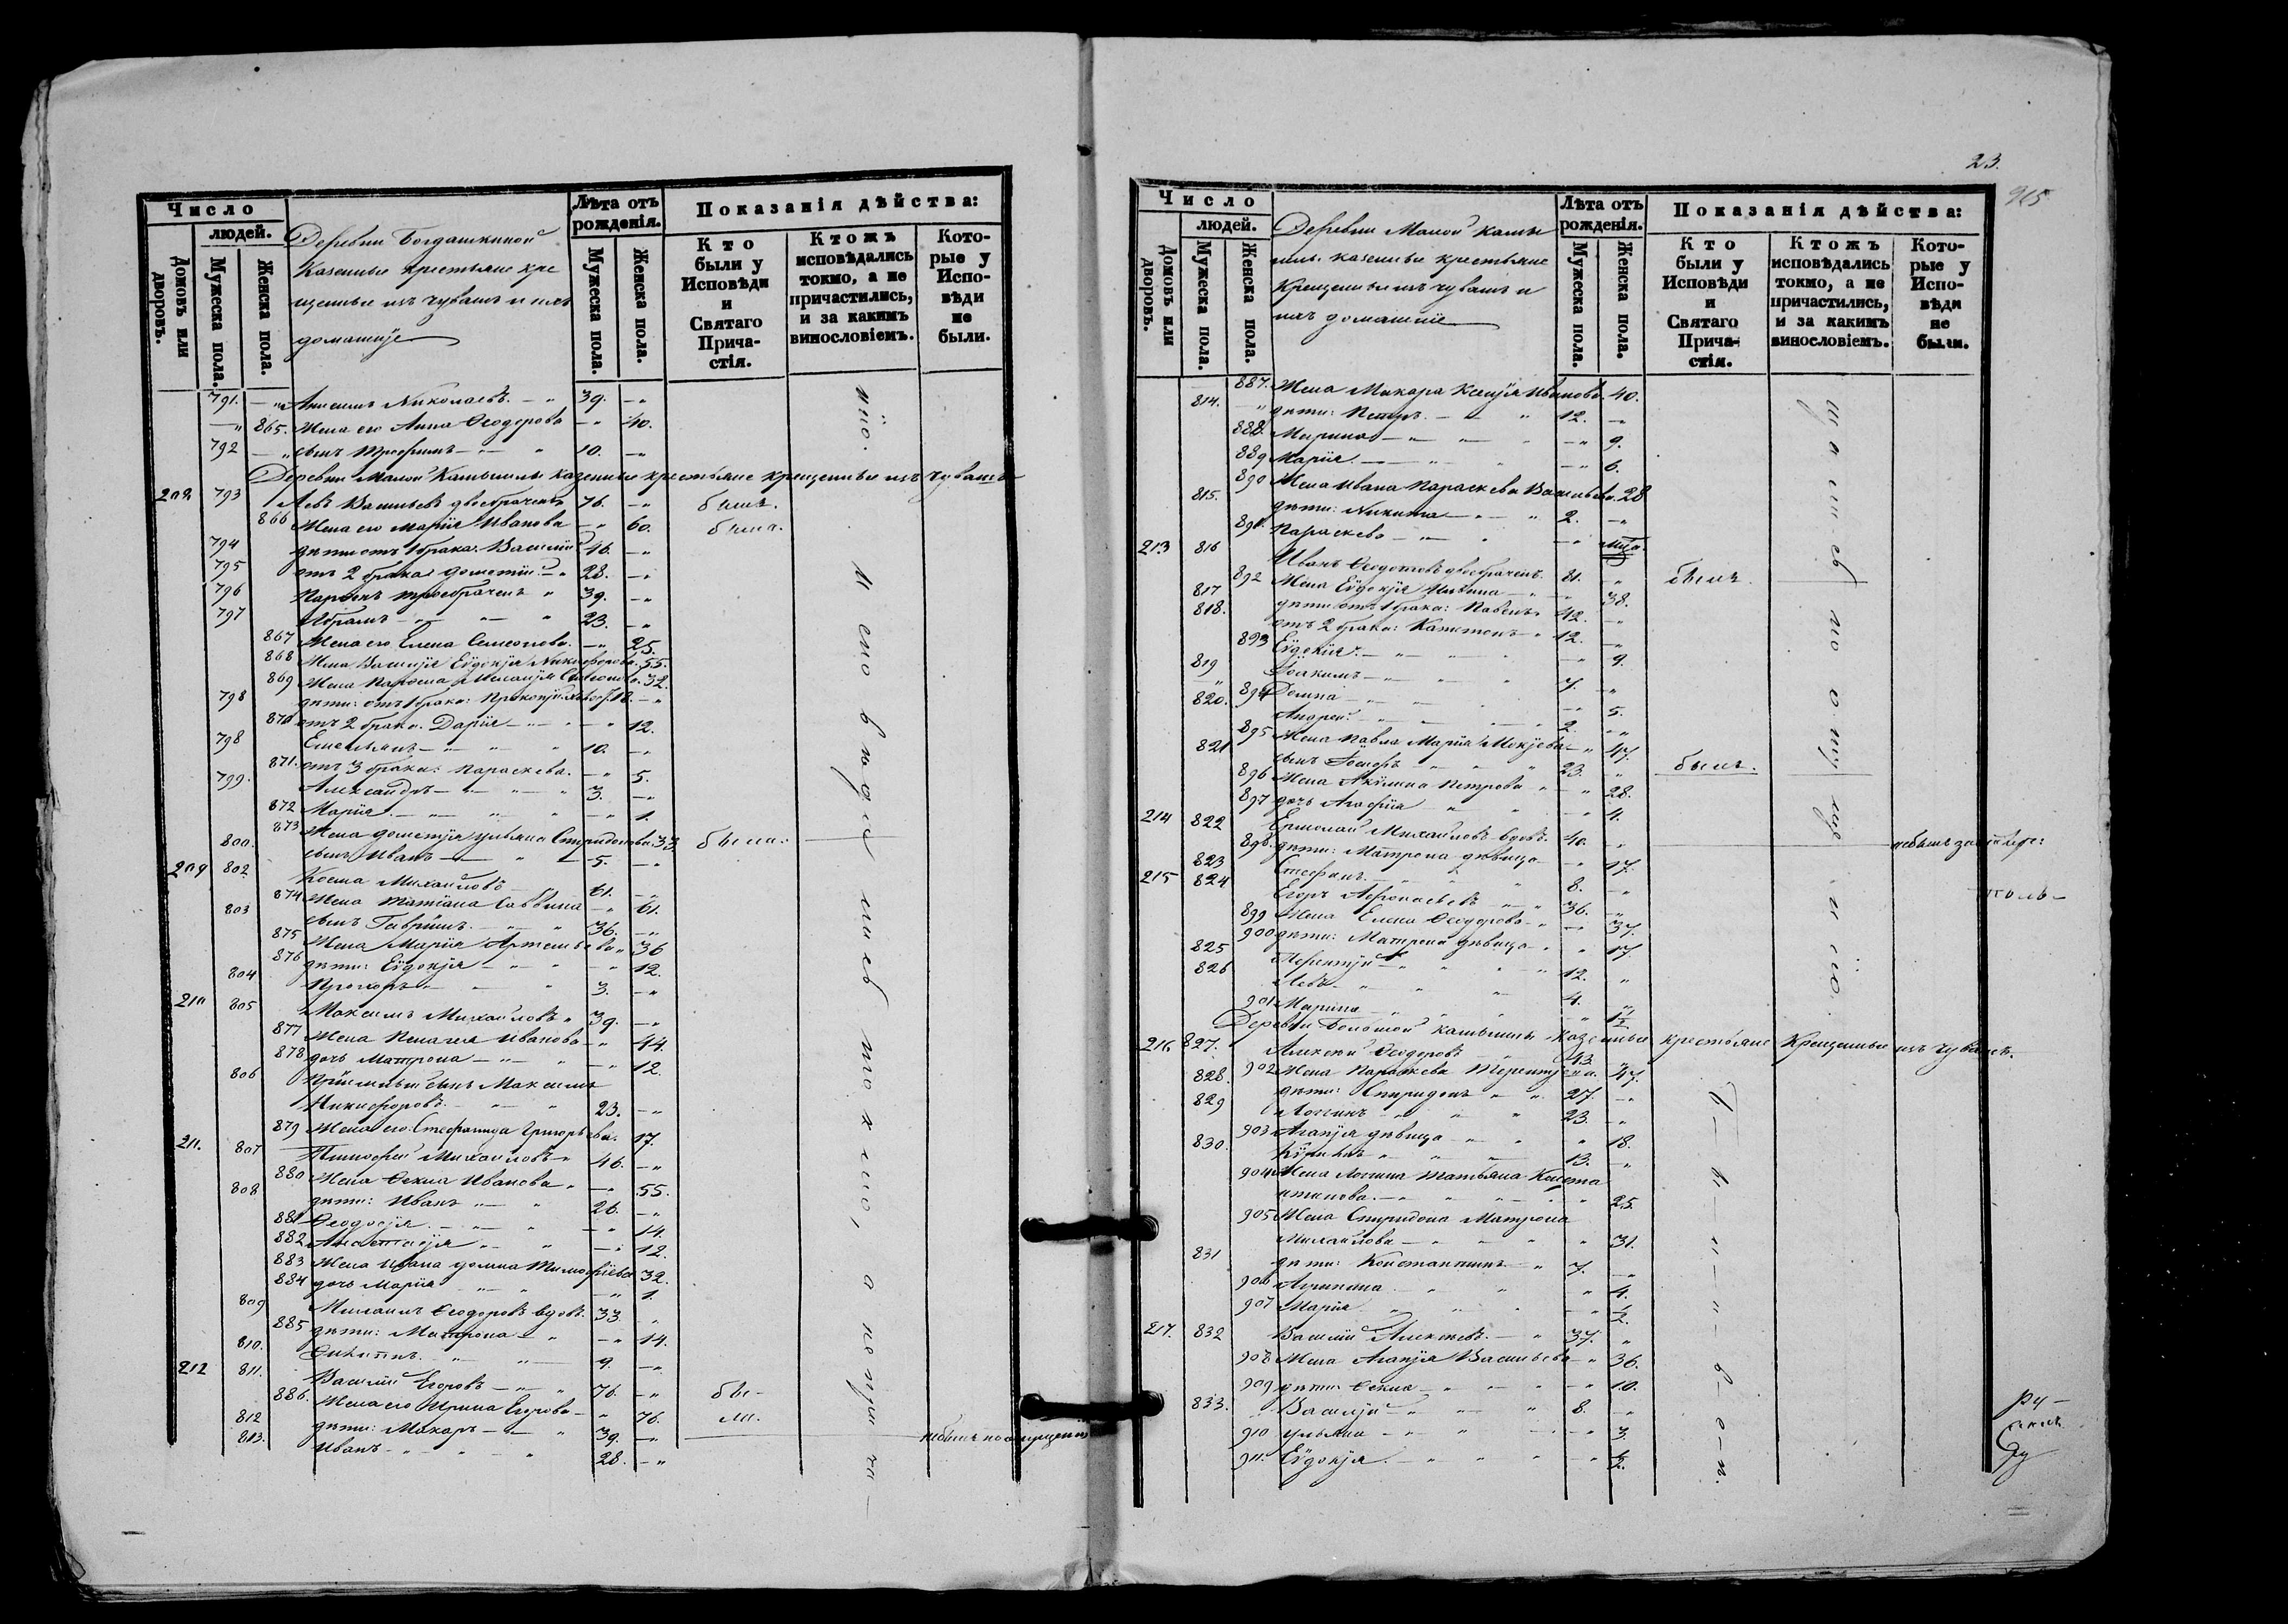 Число
людей.
Домовъ или дворовъ.
Мужеска пола.
Женска пола.
Деревни Богдашкиной
Казенные крестьяне кре
щенные изъ чувашъ и ихъ
домашніе
Лѣта отъ рожденія.
Мужеска пола.
Женска пола.
Показанія дѣйства:
Кто были у Исповѣди и Святаго Прича-стія.
Ктожъ исповѣдались токмо, а не причастились, и за какимъ винословіемъ.
Кото-рые у Испо-вѣди не были.
791. Анисимъ Николаевъ 39.
865. Жена его Анна Ѳеодорова 40.
792 сынъ Трофимъ 10.
Деревни Малой Камышлы казенные крестьяне крещенные изъ чувашъ
208 793 Левъ Васильевъ двоебраченъ 76. былъ.
866 Жена его Марія Иванова 60. была.
794 дѣти отъ 1 брака: Василій 46.
795 отъ 2 брака: Дометій 28.
796 Парѳенъ троебраченъ 39.
797 Абрамъ 23.
867 Жена его Елена Семенова. 25.
868 Жена Василія Евдокія Никифорова. 55.
869 Жена Парѳена 32.
798 дѣти: отъ 1 брака: Прокопій 18.
870 отъ 2 брака. Дарія 12.
798 Емельянъ 10.
871. отъ 3 брака: Параскева. 5.
799. Александръ 3.
872 Марія 1.
873 Жена Дометія Ульяна Спиридонова 33 была.
800. сынъ Иванъ 5.
209 802 Косма Михайловъ 61.
874 Жена Татіана Саввина 61.
803 сынъ Гаврiилъ 36.
875 Жена Марія Артемьева 36
876 дѣти: Евдокія 12.
804 Прохоръ 3.
210 805 Максимъ Михайловъ 39.
877 Жена Пелагея Иванова 44.
878 дочь Матрона 12.
806 Пріемный сынъ Максимъ
Никифоровъ 23.
879 Жена его: Стефанида Григорьева. 17.
211. 807 Тимофей Михайловъ 46.
880 Жена Ѳекла Иванова 55.
808 дѣти: Иванъ 26.
881 Ѳеодосія 14.
882 Анастасія 12.
883 Жена Ивана Домна Тимофѣева 32.
884 дочь Марія 1.
809 Михаилъ Ѳеодоровъ вдовъ. 33.
885 дѣти: Матрона 14.
810. Филиппъ 9.
212 811. Василій Егоровъ 76. бы-
886. Жена его Ирина Егорова 76. ли.
812 дѣти: Макаръ 39.
813. Иванъ 28.
23.
915
Число
людей.
Домовъ или дворовъ.
Мужеска пола.
Женска пола.
Деревни Малой Камы
шлы казенные крестьяне
Крещенные изъ чувашъ и
ихъ домашніе
Лѣта отъ рожденія.
Мужеска пола.
Женска пола.
Показанія дѣйства:
Кто были у Исповѣди и Святаго Прича-стія.
Ктожъ исповѣдались токмо, а не причастились, и за какимъ винословіемъ.
Кото-рые у Испо-вѣди не были.
887. Жена Макара Ксенія Иванова. 40.
814. дѣти: Петръ 12.
888. Марина 9.
889 Марія 6.
890 Жена Ивана Параскева Васильева. 28
815. дѣти: Никита 2.
891. Параскева
213 816 Иванъ Ѳедотовъ двоебраченъ. 81. былъ
892 Жена Евдокія Ильина 38.
817 дѣти отъ 1 брака: Павелъ 42.
818. отъ 2 брака: Капитонъ 12.
893 Евдокія 9.
819 Іоакимъ 7.
894 Домна 5.
820. Андрей 2.
895 Жена Павла Марія Мокѣева 47.
821 сынъ Іосифъ 23. былъ.
896 Жена Акилина Петрова 28.
897 дочь Агафія 4.
214 822 Ермолай Михайловъ вдовъ. 40.
898. дѣти: Матрона дѣвица 17.
823 Стефанъ 8.
215 824 Егоръ Афонасьевъ 36.
899 Жена Елена Ѳеодорова 37.
900 дѣти: Матрена дѣвица 17.
825 Терентій 12.
826 Левъ 4.
901 Марина 1/2
Деревни Большой Камышлы казенные крестьяне Крещенные изъ чувашъ.
216 827. Алексѣй Ѳеодоровъ 43.
902 Жена Параскева Терентьева. 47.
828. дѣти: Спиридонъ 27.
829 Логгинъ 23.
903 Агапія дѣвица 18.
830. Кириллъ 13.
904 Жена Логгина Татьяна Конста
нтинова 25.
905 Жена Спиридона Матрона
Михайлова 31.
831 дѣти: Константинъ 7.
906 Агрипина 4.
907 Марія 1/2.
217. 832 Василій Алексѣевъ. 37.
908 Жена Агапія Васильева 36.
909 дѣти Ѳекла 10.
833. Василій 8.
910 Ульяна 3.
911. Евдокія 1/2.